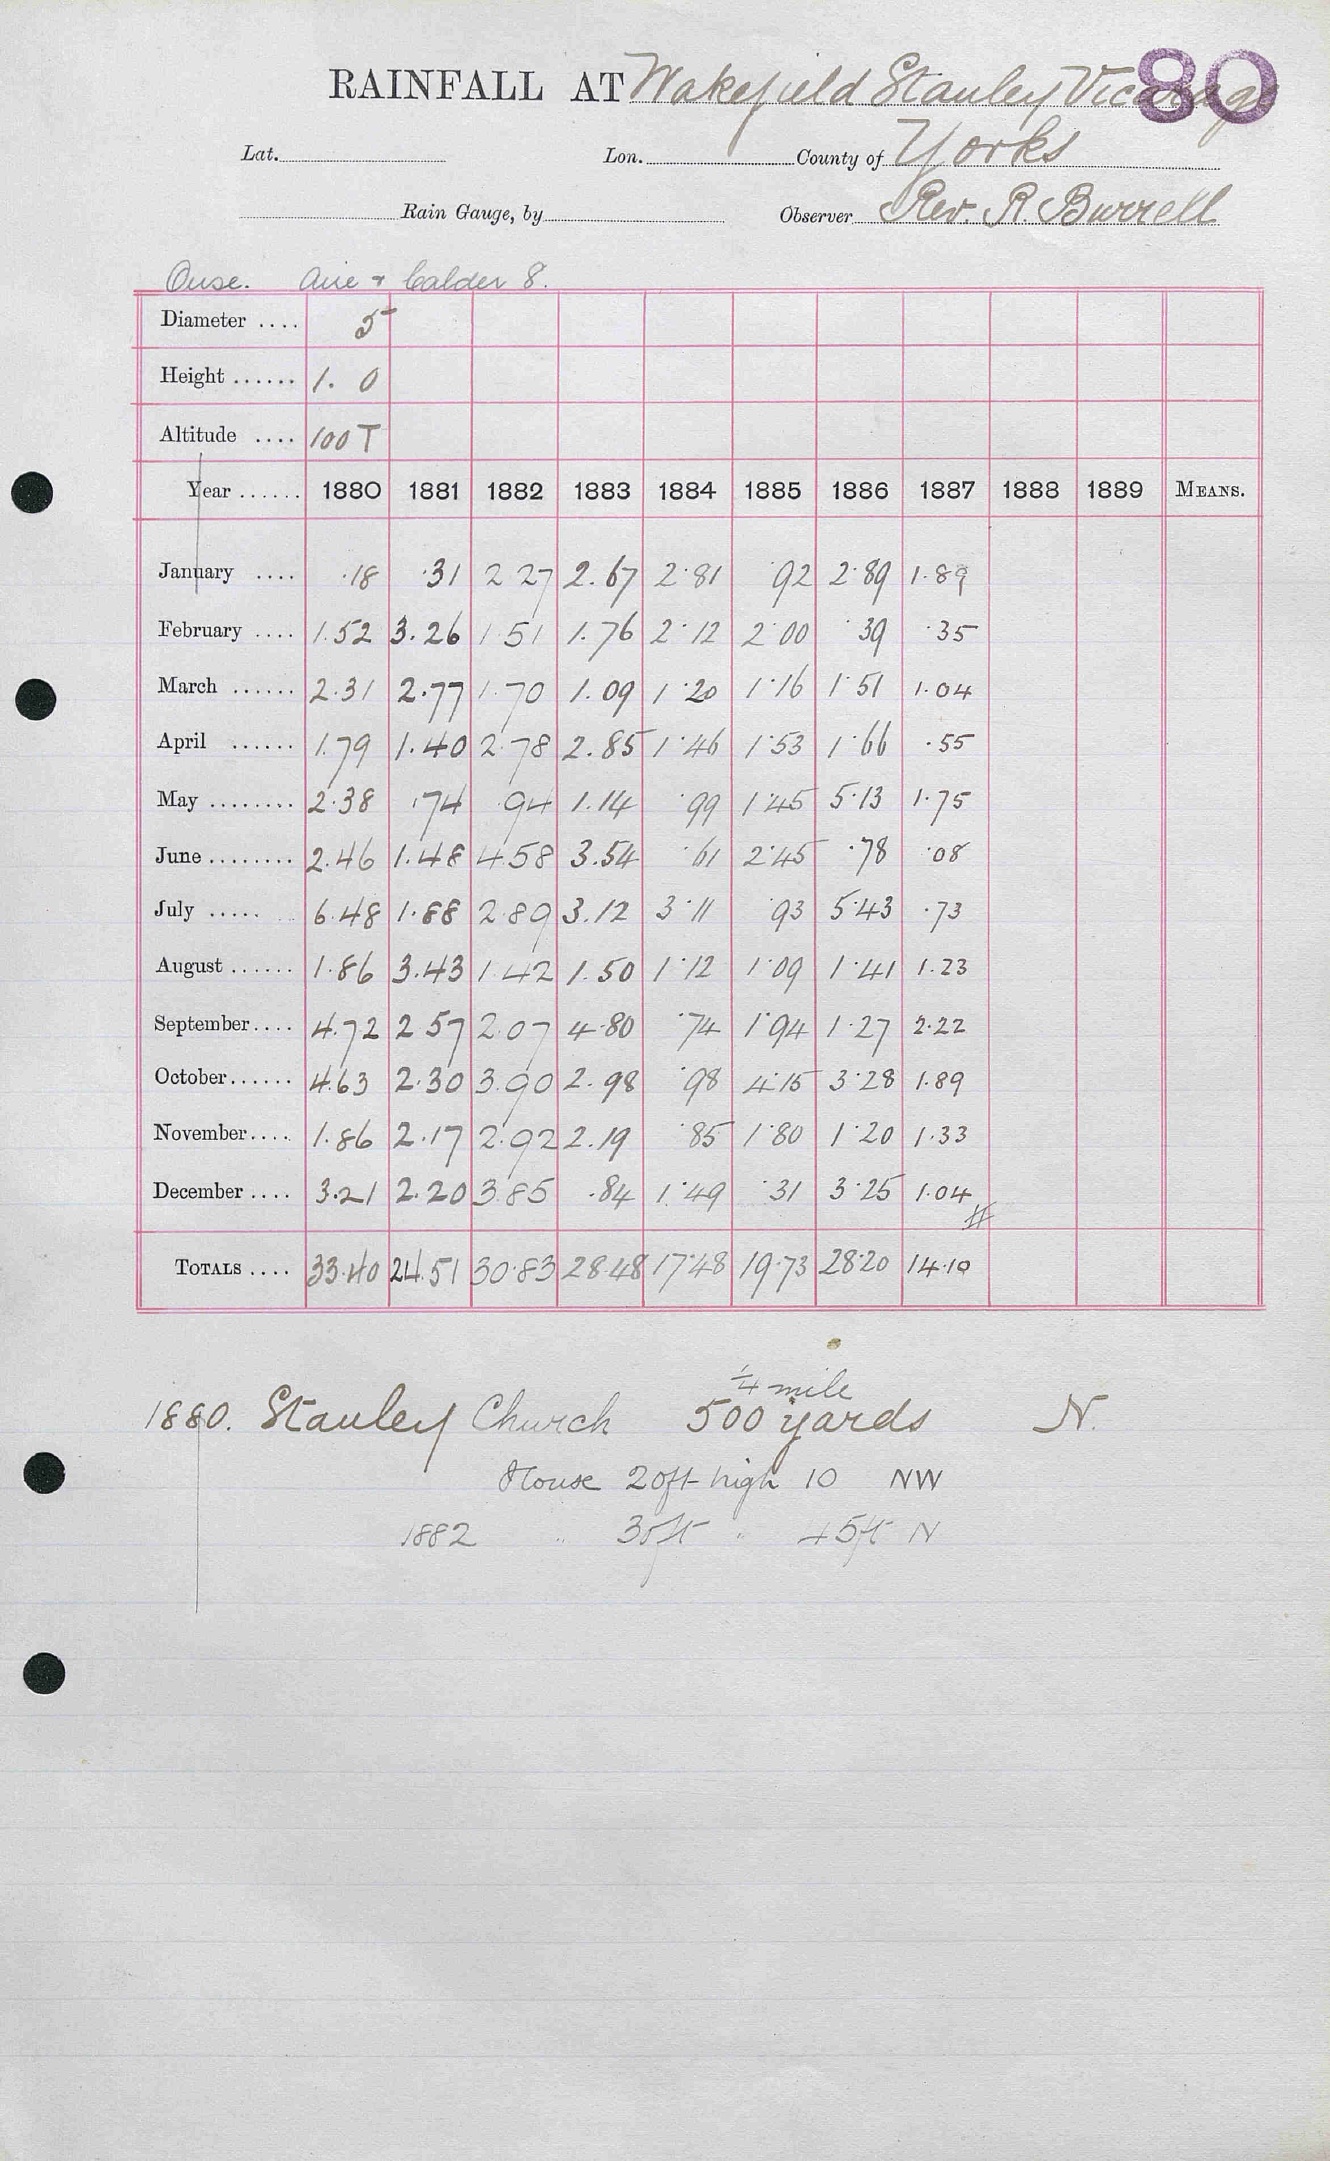 80
RAINFALL AT Wakefield Stanley Vicarage
Lat. Lon. County of Yorks
Rain Gauge, by Observer Rev. R. Burrell
Ouse. Aire & Calder 8.
Diameter .... 5
Height ...... 1. 0
Altitude .... 100 T
Year ...... 1880 1881 1882 1883 1884 1885 1886 1887 1888 1889 MEANS.
January .... .18 .31 2 27 2.67 2.81 .92 2.89 1.89
February .... 1.52 3.26 1 51 1.76 2.12 2.00 .39 .35
March ...... 2.31 2.77 1.70 1.09 1.20 1.16 1.51 1.04
April ...... 1.79 1.40 2.78 2.85 1.46 1.53 1.66 .55
May ........ 2.38 .74 .94 1.14 .99 1.45 5.13 1.75
June ........ 2.46 1.48 4.58 3.54 .61 2.45 .78 .08
July ..... 6.48 1.88 2.89 3.12 3.11 .93 5.43 .73
August ...... 1.86 3.43 1.42 1.50 1.12 1.09 1.41 1.23
September .... 4.72 2 57 2.07 4.80 .74 1.94 1.27 2.22
October ...... 4.63 2.30 3.90 2.98 .98 4.15 3.28 1.89
November .... 1.86 2.17 2.92 2.19 .85 1.80 1.20 1.33
December .... 3.21 2.20 3.85 .84 1.49 .31 3.25 1.04
#
TOTALS .... 33.40 24.51 30.83 28.48 17.48 19.73 28.20 14.10
1/4 mile
1880. Stanley Church 500 yards N.
House 20ft high 10 NW
1882 " 35ft " 45ft N